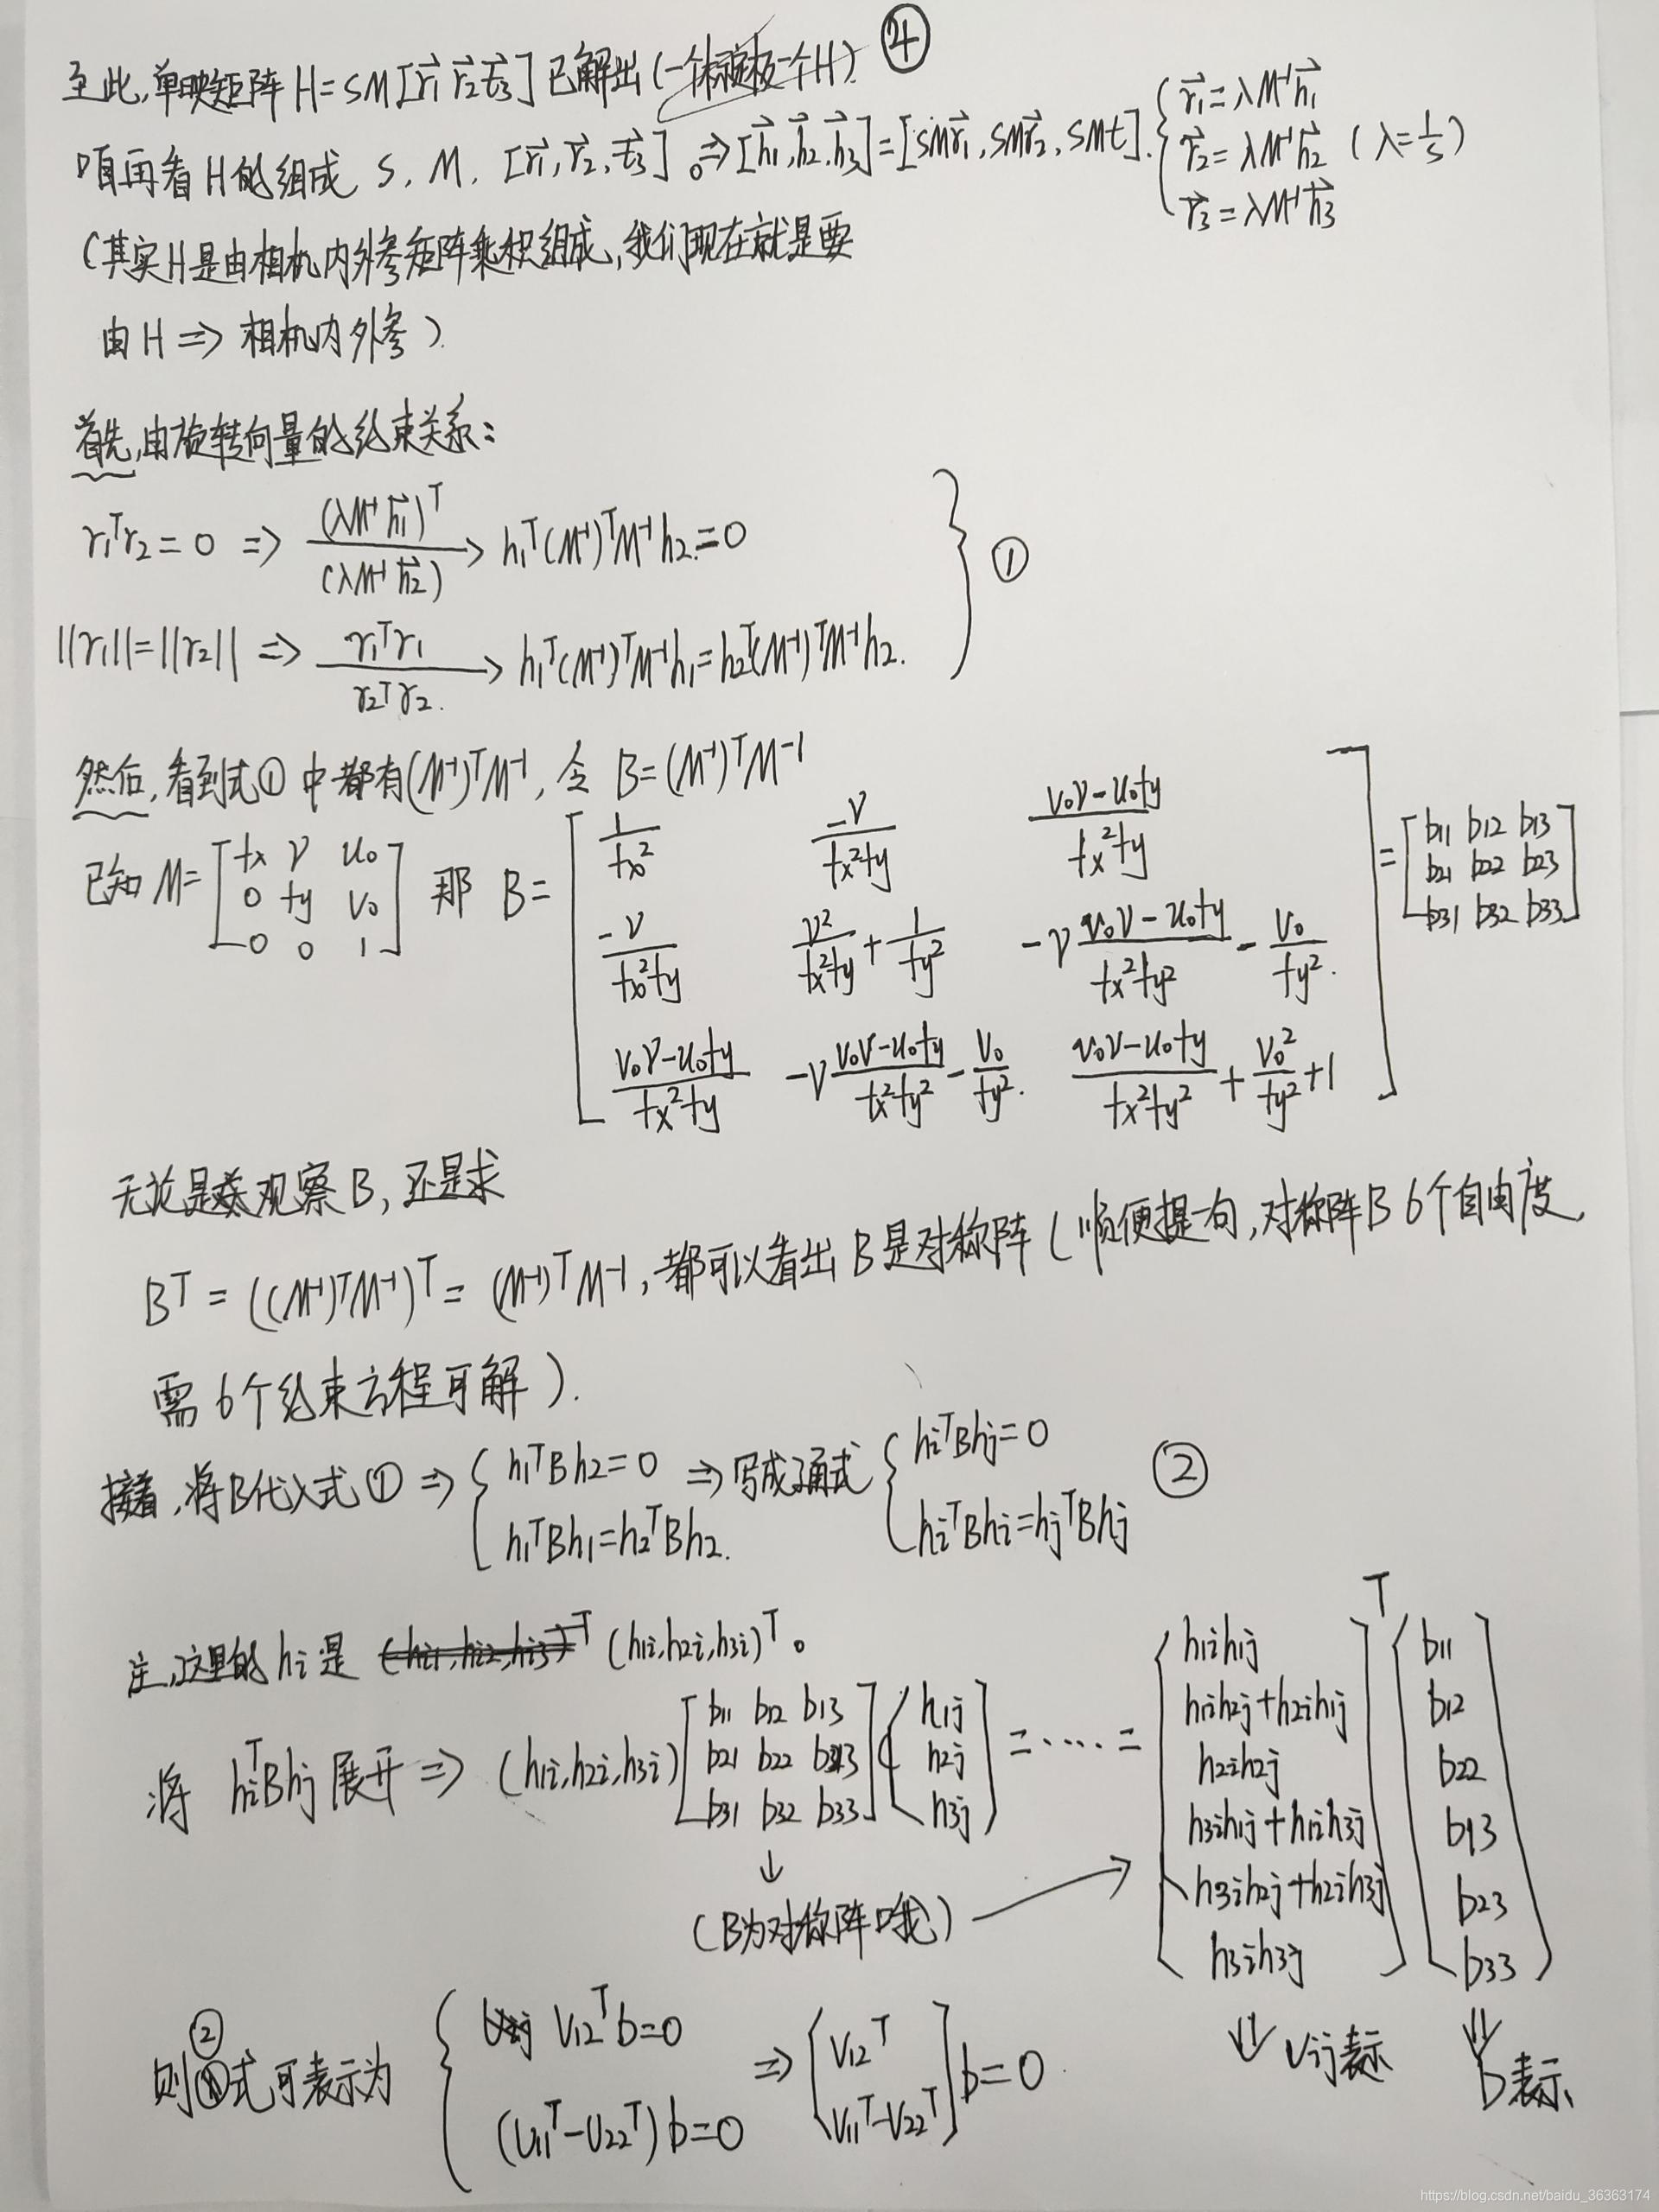 ④
至此,单映矩阵 H=SM[r⃗₁ r⃗₂ t⃗₃] 已解出(一个标定板一个H).
咱再看H的组成 S, M, [r⃗₁, r⃗₂, t⃗₃]。⇒[h⃗₁,h⃗₂,h⃗₃]=[SMr⃗₁, SMr⃗₂, SMt].
{ r⃗₁=λM⁻¹h⃗₁
r⃗₂=λM⁻¹h⃗₂ (λ=1/S)
r⃗₃=λM⁻¹h⃗₃
(其实H是由相机内外参矩阵乘积组成,我们现在就是要
由H ⇒ 相机内外参).
首先,由旋转向量的约束关系:
r₁ᵀr₂=0 ⇒ (λM⁻¹h⃗₁)ᵀ / (λM⁻¹h⃗₂) → h₁ᵀ(M⁻¹)ᵀM⁻¹h₂=0
||r₁||=||r₂|| ⇒ r₁ᵀr₁ / r₂ᵀr₂. → h₁ᵀ(M⁻¹)ᵀM⁻¹h₁=h₂ᵀ(M⁻¹)ᵀM⁻¹h₂. } ①
然后,看到式①中都有(M⁻¹)ᵀM⁻¹, 令 B=(M⁻¹)ᵀM⁻¹
已知 M= [fx γ u₀
0 fy v₀
0 0 1] 那 B=
[1/fx² -γ/fx²fy (v₀γ-u₀fy)/fx²fy
-γ/fx²fy γ²/fx²fy + 1/fy² -γ(v₀γ-u₀fy)/fx²fy² - v₀/fy².
(v₀γ-u₀fy)/fx²fy -γ(v₀γ-u₀fy)/fx²fy² - v₀/fy². (v₀γ-u₀fy)/fx²fy² + v₀²/fy² +1]
= [b11 b12 b13
b21 b22 b23
b31 b32 b33]
无论是观察B, 还是求
Bᵀ = ((M⁻¹)ᵀM⁻¹)ᵀ = (M⁻¹)ᵀM⁻¹, 都可以看出B是对称阵(顺便提一句,对称阵B 6个自由度,
需6个约束方程可解).
接着,将B代入式① ⇒ { h₁ᵀBh₂=0
h₁ᵀBh₁=h₂ᵀBh₂.
⇒写成通式 { hᵢᵀBhⱼ=0
hᵢᵀBhᵢ=hⱼᵀBhⱼ ②
注,这里的hᵢ是 (hi1,hi2,hi3)ᵀ (h1i,h2i,h3i)ᵀ。
将 hᵢᵀBhⱼ展开 ⇒ (h1i,h2i,h3i)
[b11 b12 b13
b21 b22 b23
b31 b32 b33]
(h1j
h2j
h3j]
=·····=
[h1ih1j
h1ih2j+h2ih1j
h2ih2j
h3ih1j+h1ih3j
h3ih2j+h2ih3j
h3ih3j]ᵀ
[b11
b12
b22
b13
b23
b33)
↓
(B为对称阵哦) →
⇓ Vij表示
⇓ b表示
则②式可表示为 { V12ᵀb=0
(V11ᵀ-V22ᵀ)b=0
⇒ [V12ᵀ
V11ᵀ-V22ᵀ] b=0
https://blog.csdn.net/baidu_36363174